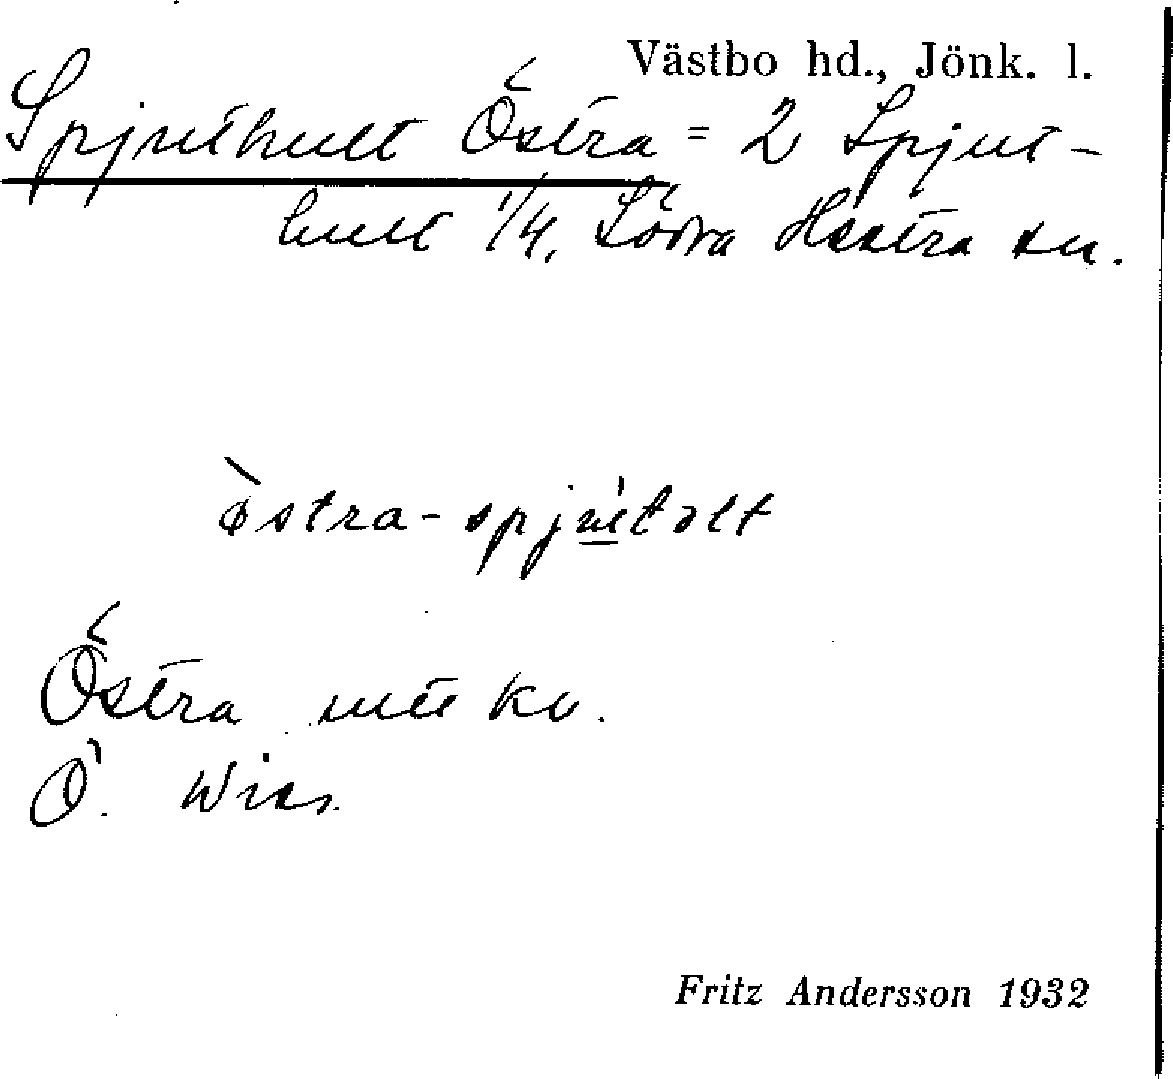 Västbo hd., Jönk. l.
Spjuthult Östra = 2 Spjut-
hult 1/4, Södra Hestra sn.
östra-spjutolt
Östra    kv.
Ö.
Fritz Andersson 1932